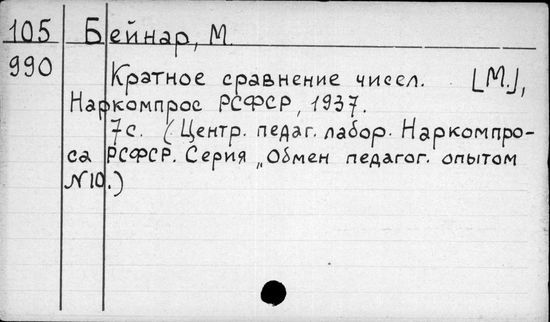 105 Бейнар, М.
990
Кратное сравнение чисел. [М.],
Наркомпрос РСФСР, 1937.
7с. (Центр. педаг. лабор. Наркомпро-
са РСФСР. Серия „Обмен педагог. опытом
№10.)